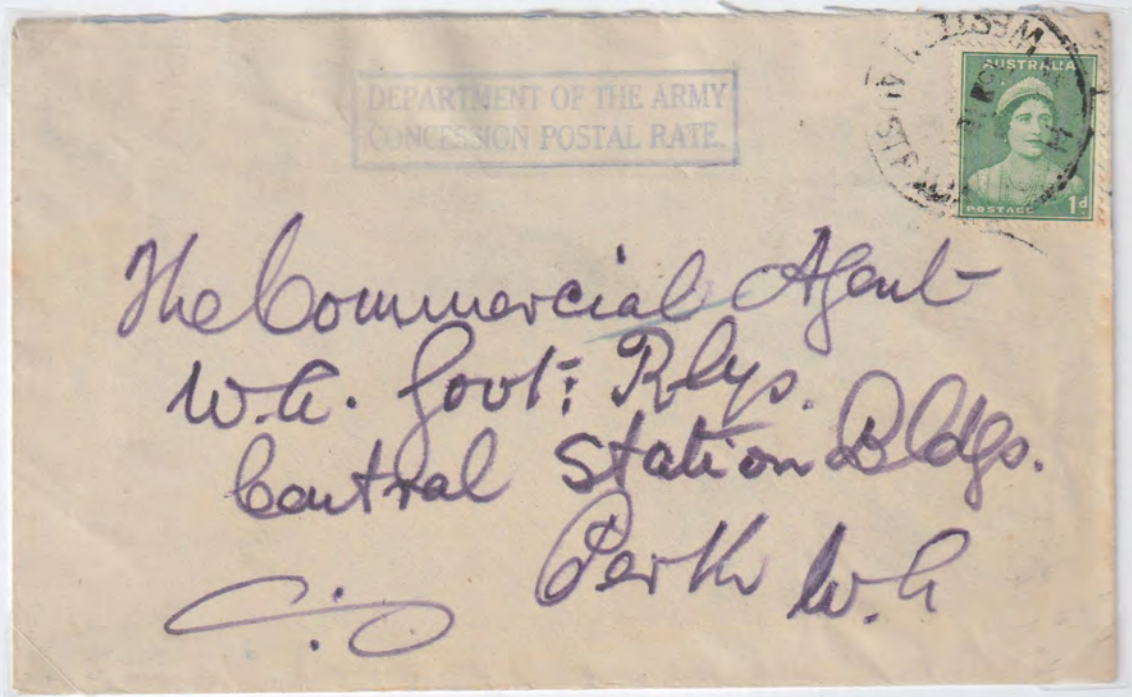 DEPARTMENT OF THE ARMY
CONCESSION POSTAL RATE.
AUSTRALIA
POSTAGE 1d
The Commercial Agent
W.A. Govt: Rlys.
Central Station Bldgs.
Perth W.A